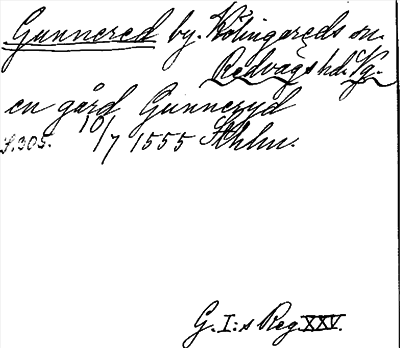 Gunnered by. Kölingareds sn.
Redvägs hd. Vg.
en gård Gunneryd
S.305. 10/7 1555 Sthlm.
G. I:s Reg. XXV.